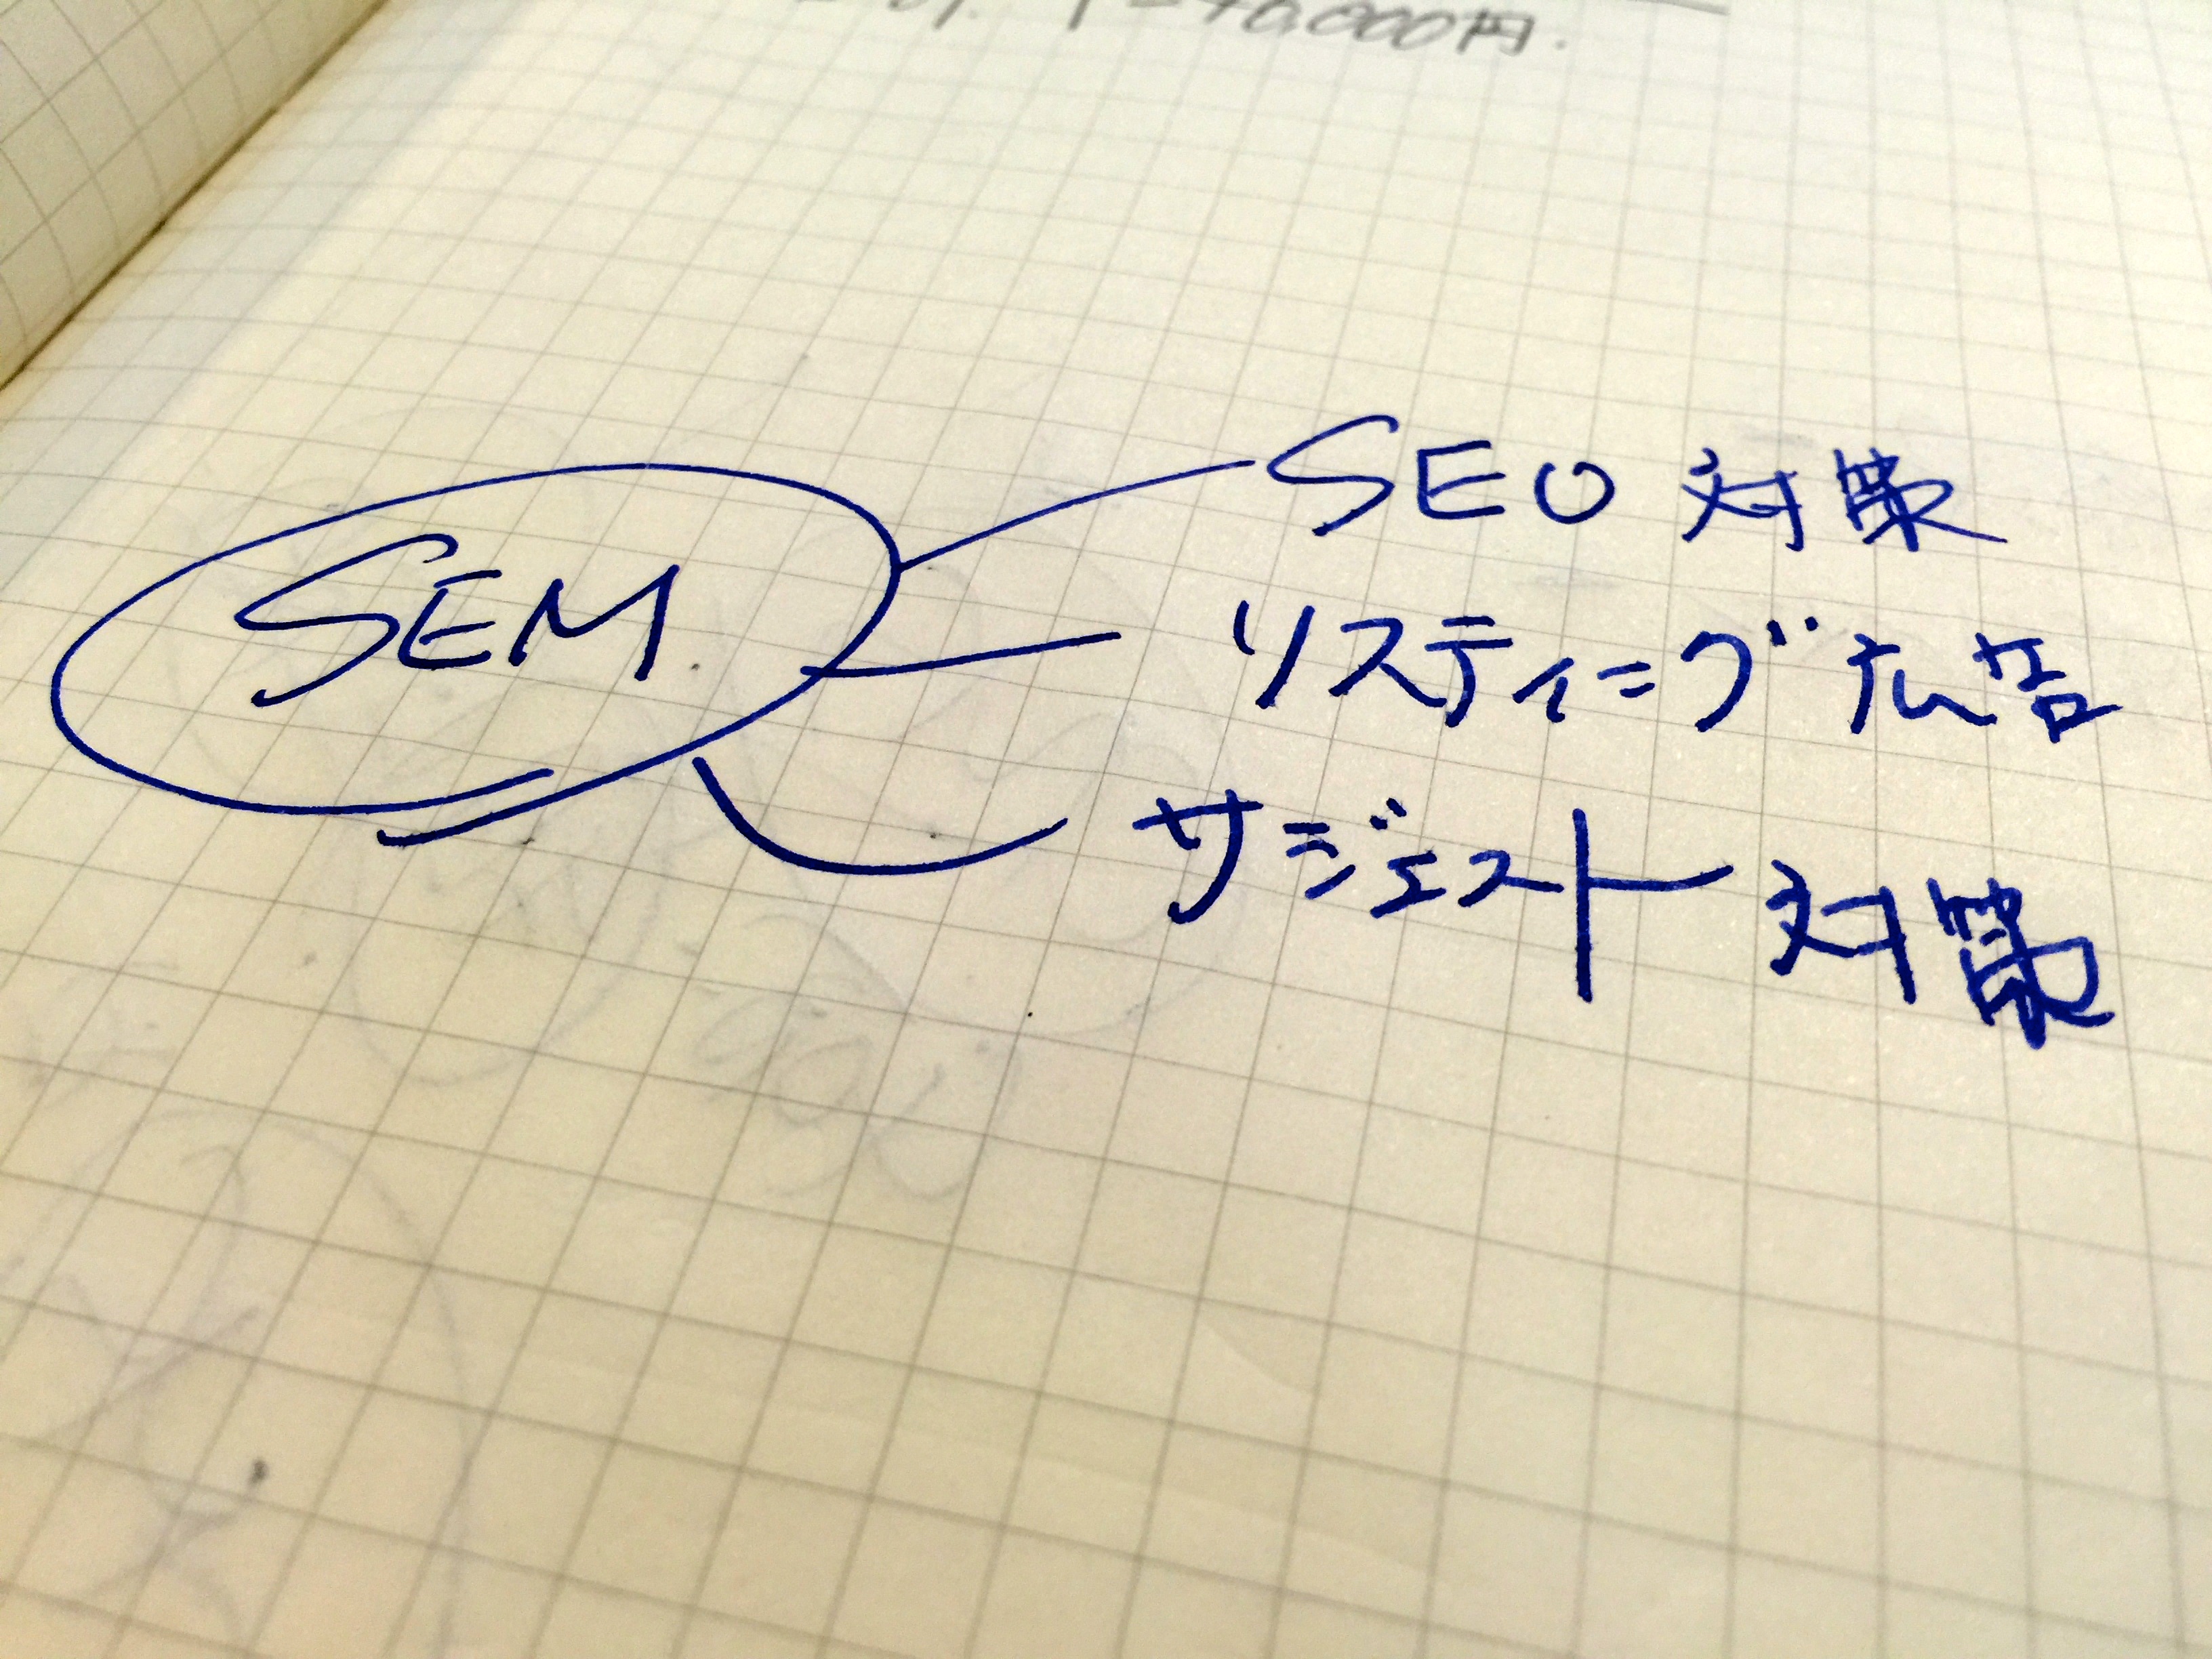 40,000円.
SEM
SEO 対策
リスティング 広告
サジェスト 対策